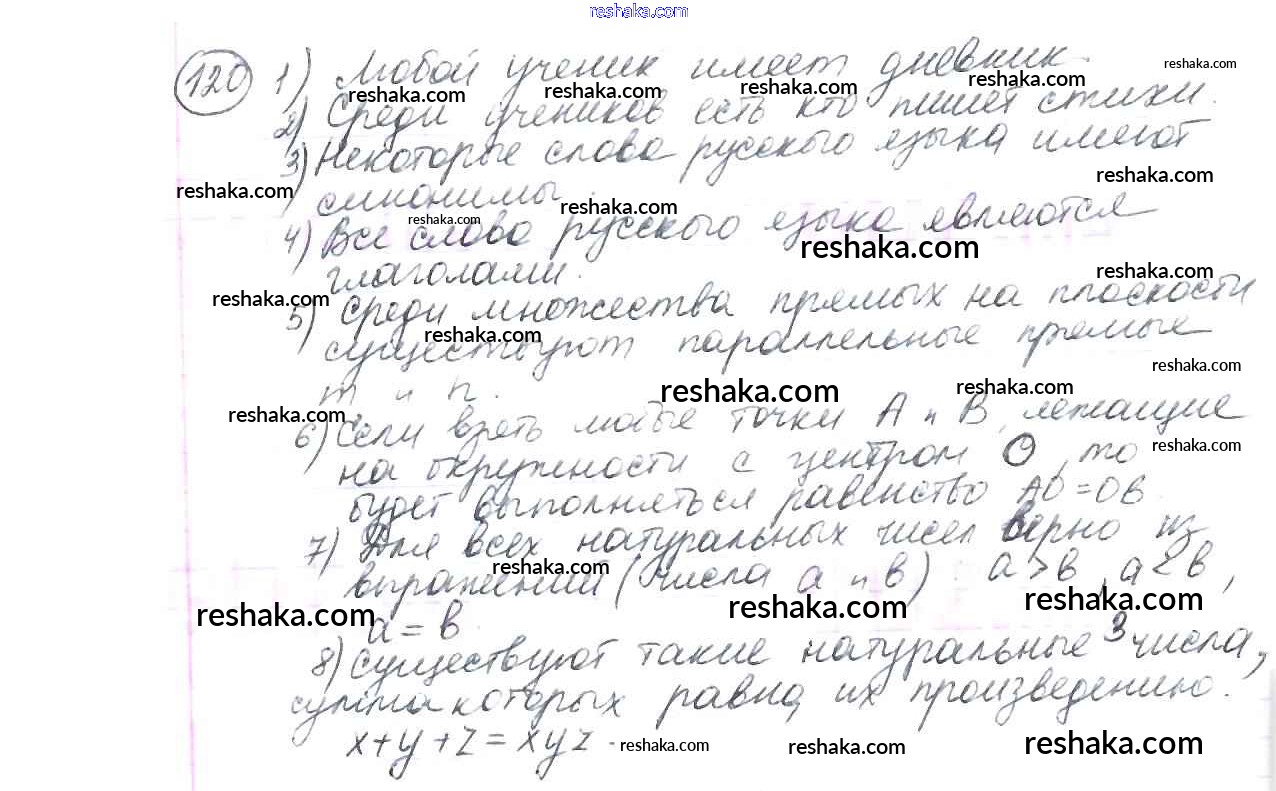 reshaka.com
120 1) Любой ученик имеет дневник. reshaka.com
reshaka.com reshaka.com reshaka.com reshaka.com
2) Среди учеников есть кто пишет стихи.
3) Некоторые слова русского языка имеют
reshaka.com reshaka.com
синонимы. reshaka.com
reshaka.com
4) Все слова русского языка являются
reshaka.com
глаголами. reshaka.com
reshaka.com
5) Среди множества прямых на плоскости
reshaka.com
существуют параллельные прямые
reshaka.com
m и n. reshaka.com reshaka.com
reshaka.com
6) Если взять любые точки A и B, лежащие
на окружности с центром O, то reshaka.com
будет выполняться равенство AO = OB.
7) Для всех натуральных чисел верно из
reshaka.com
выражений (числа a и b) : a > b, a < b,
reshaka.com reshaka.com reshaka.com
a = b
8) Существуют такие натуральные 3 числа,
сумма которых равна их произведению.
x + y + z = xyz. reshaka.com reshaka.com reshaka.com